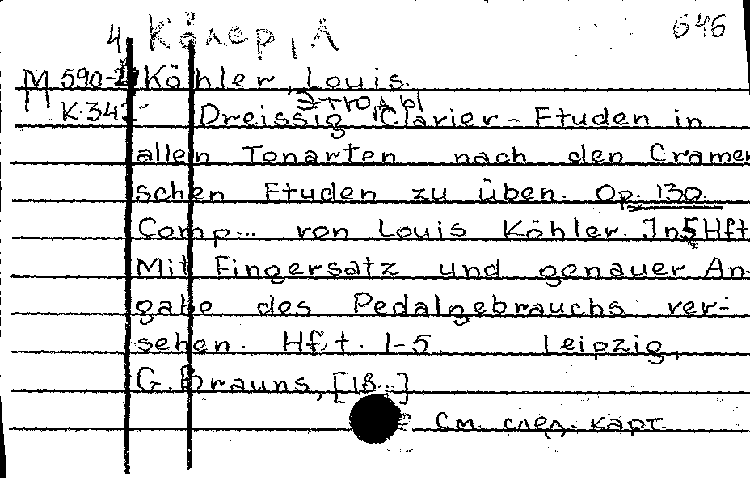 4 Кёлер, Л 646
М 590-2 Köhler, Louis.
Этюды
К-342 Dreissig Clavier-Etuden in
allen Tonarten nach den Cramer
schen Etuden zu üben. Op. 130.
Comp... von Louis Köhler. In 5 Hft
Mit Fingersatz und genauer An-
gabe des Pedalgebrauchs ver-
sehen. Hft. 1-5 Leipzig,
G. Brauns, [18..]
См. след. карт.